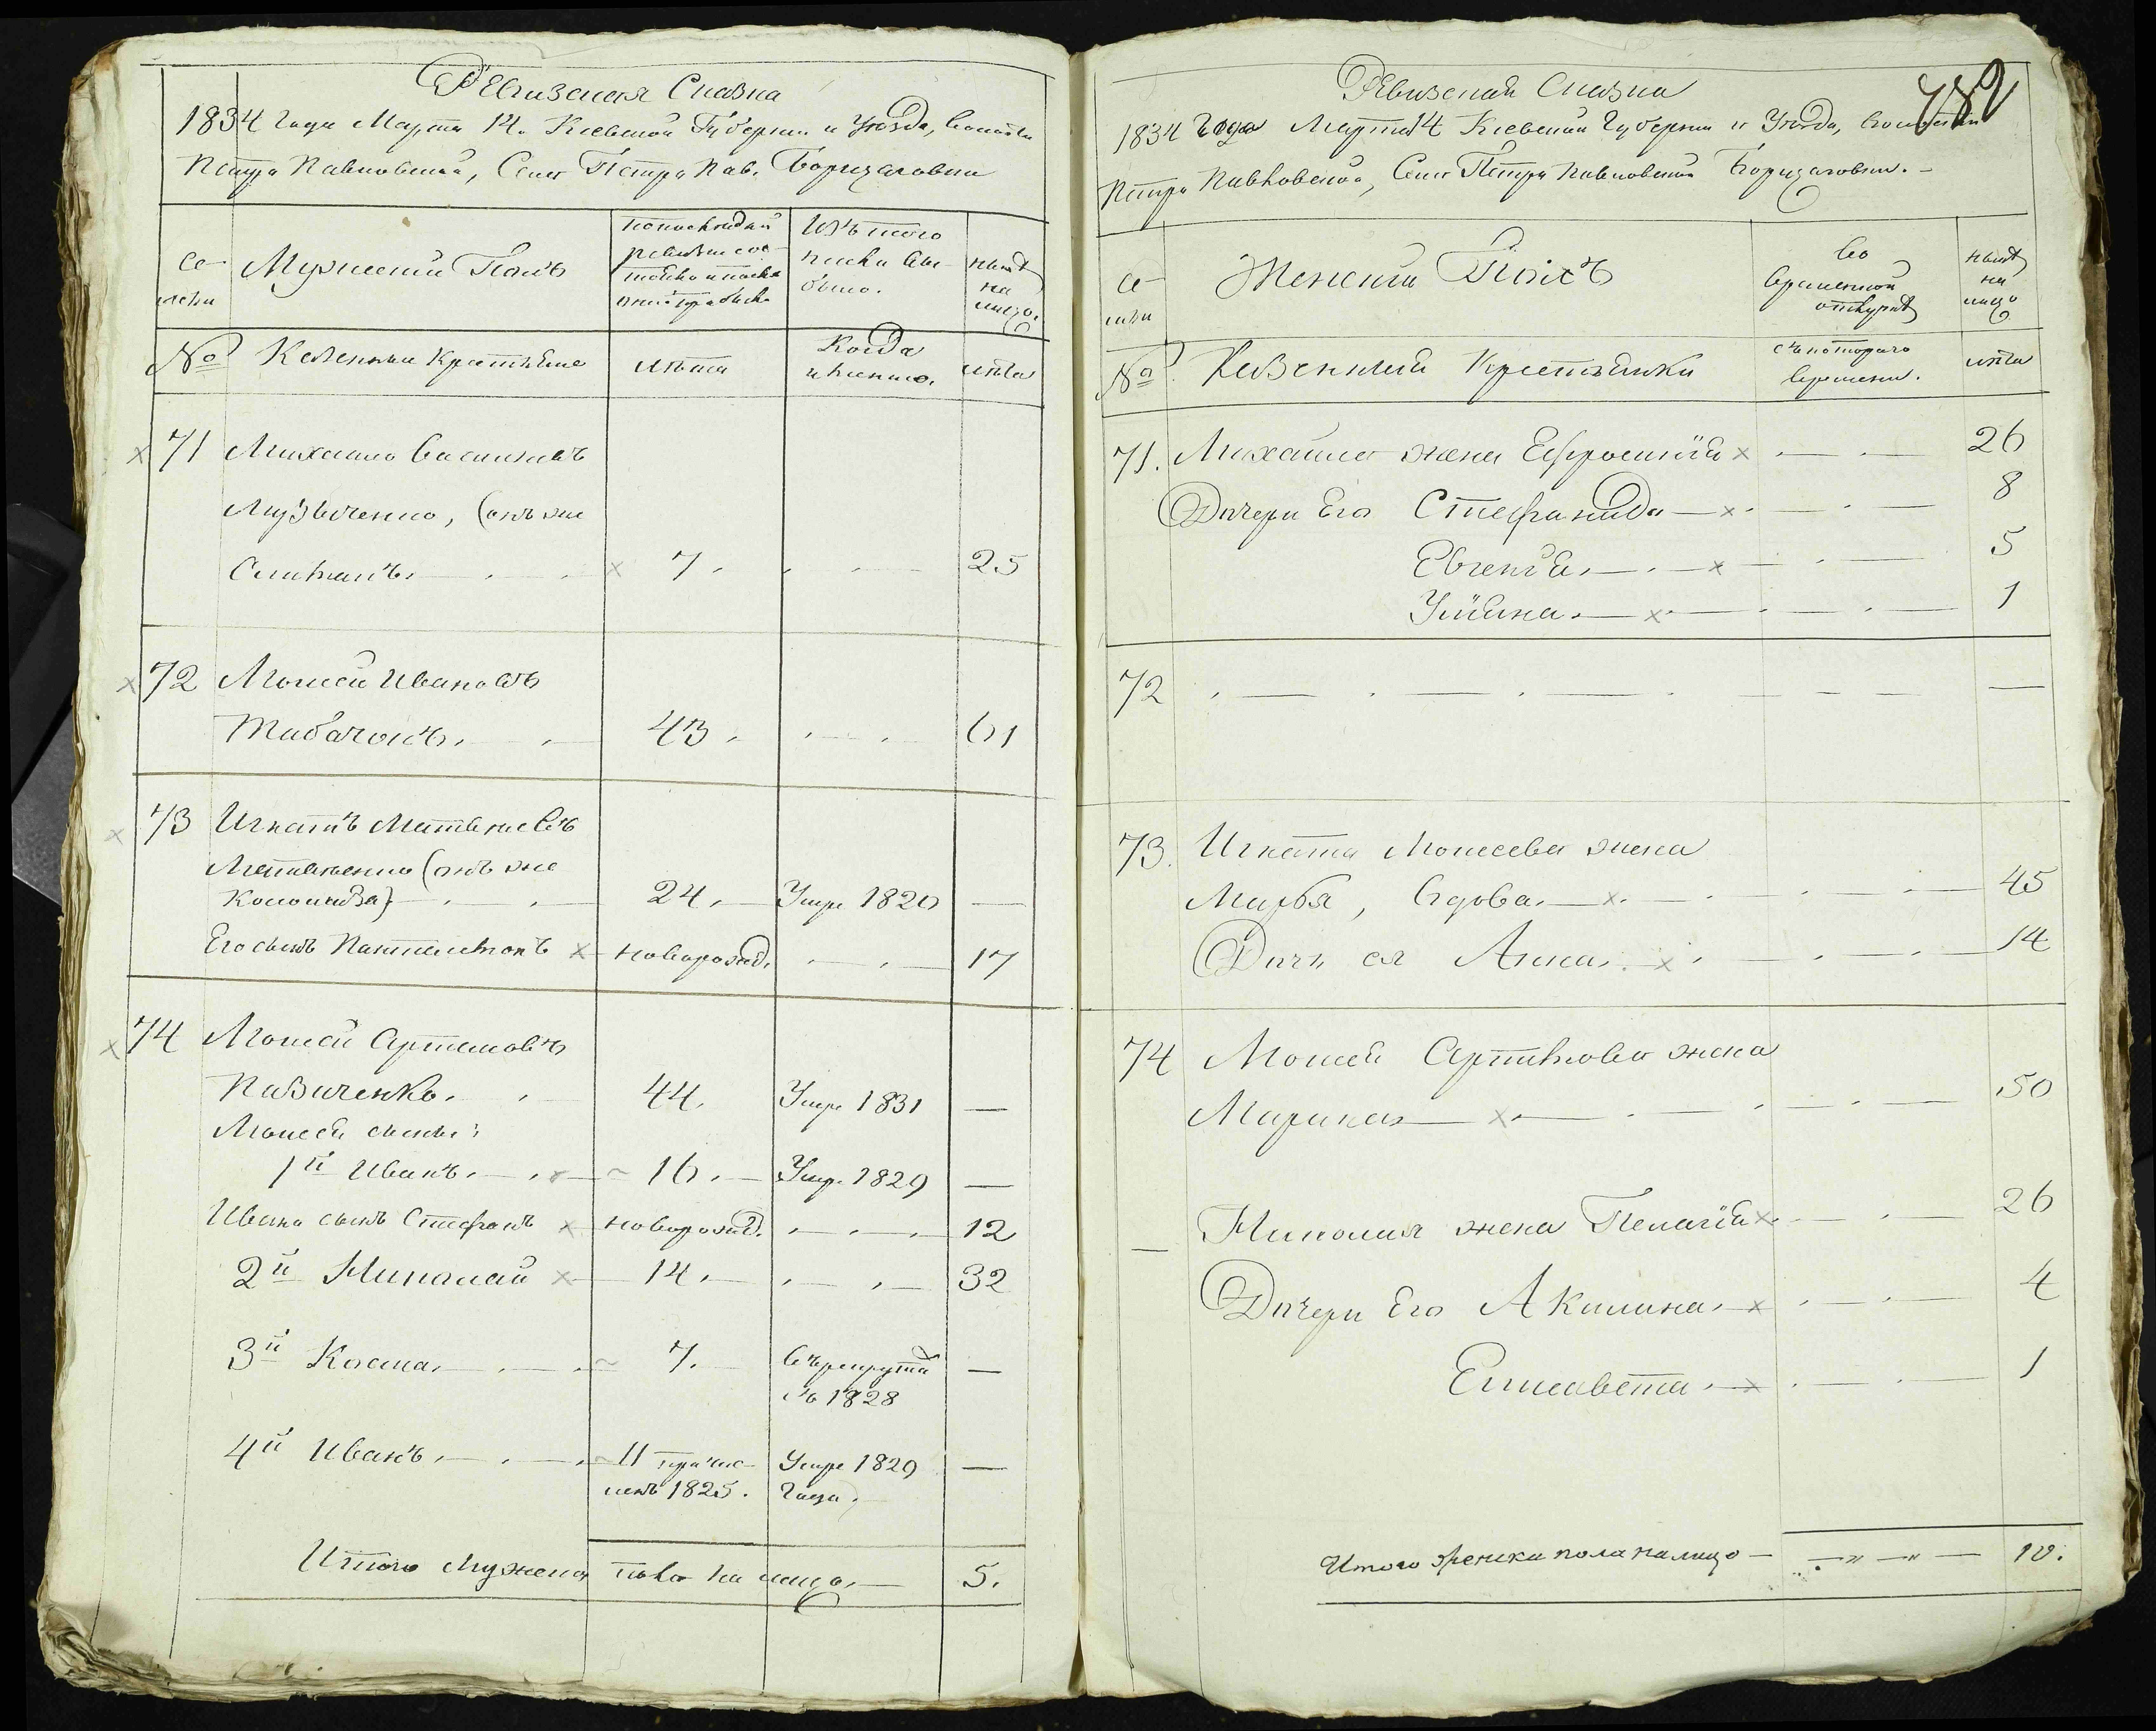 Ревизская Сказка
1834 года Марта 14. Киевской Губернии и Уѣзда, волости
Петро Павловской, Села Петро Пав. Борщаговки
Се-
мьи
Мужеский Полъ
По последней
ревизии со-
стояло и после
оной прибыло
Изъ того
числа вы-
было.
ныне
на
лицо.
№
Казенныи Крестьяне
Лѣта
Когда
именно.
лѣта
71 Михайло Васильевъ
Музыченко, (онъ же
Слипань. 7. 25
72 Моисей Ивановъ
Табачокъ. 43. 61
73 Игнатъ Матвѣевъ
Матвѣенко (онъ же
Коломийза) 24. Умре 1820 —
Его сынъ Пантелимонъ новорожд. 17
74 Моисей Артемовъ
Назаренко. 44. Умре 1831 —
Моисея сыны:
1й Иванъ. 16. Умре 1829 —
Ивана сынъ Стефанъ новорожд. 12
2й Николай 14. 32
3й Косма. 7. въ рекруты —
въ 1828
4й Иванъ. 11 причис- Умре 1829 —
ленъ 1825. года.
Итого мужеска пола на лицо. 5.
782
Ревизская Сказка
1834 года Марта 14 Киевской Губернии и Уѣзда, волости
Петро Павловской, Села Петро Павловской Борщаговки.
Се-
мьи
Женский Полъ
Во
временной
отлучкѣ
ныне
на
лицо
№
Казенныи Крестьянки
съ котораго
времени.
лѣта
71. Михайла жена Ефросинія 26
Дочери его Стефанида 8
Евгенія. 5
Уліяна. 1
72 —
73. Игната Моисеева жена
Марья, вдова. 45
Дочь ея Анна. 14
74 Моисея Артемова жена
Марина 50
— Николая жена Пелагія 26
Дочери его Акилина. 4
Елисавета. 1
Итого женска пола налицо — 10.